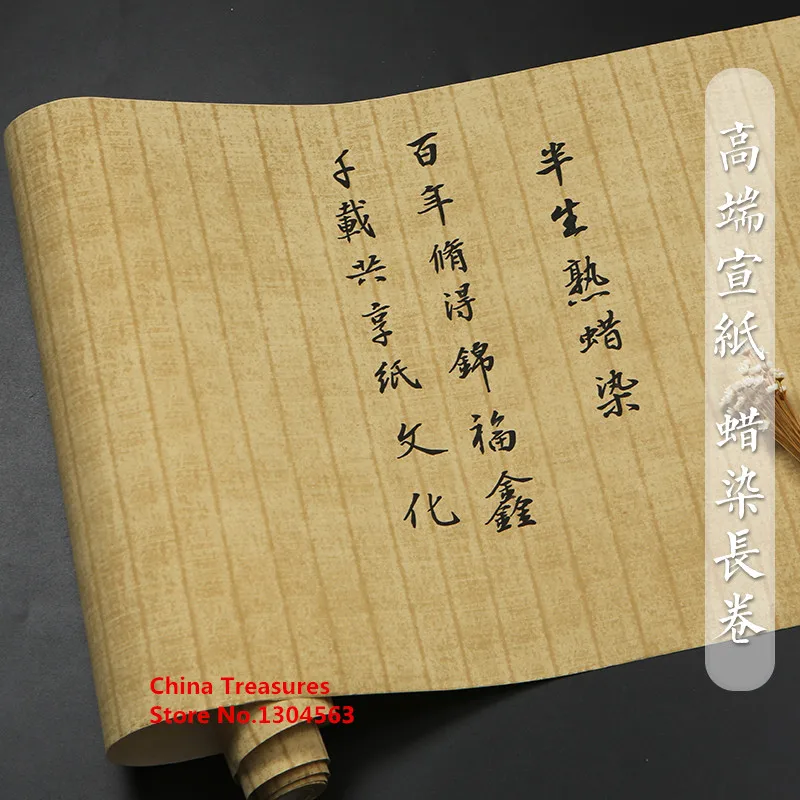 高端宣紙 蜡染長卷
半生熟蜡染
百年脩得錦福鑫
千載共享纸文化
China Treasures
Store No.1304563